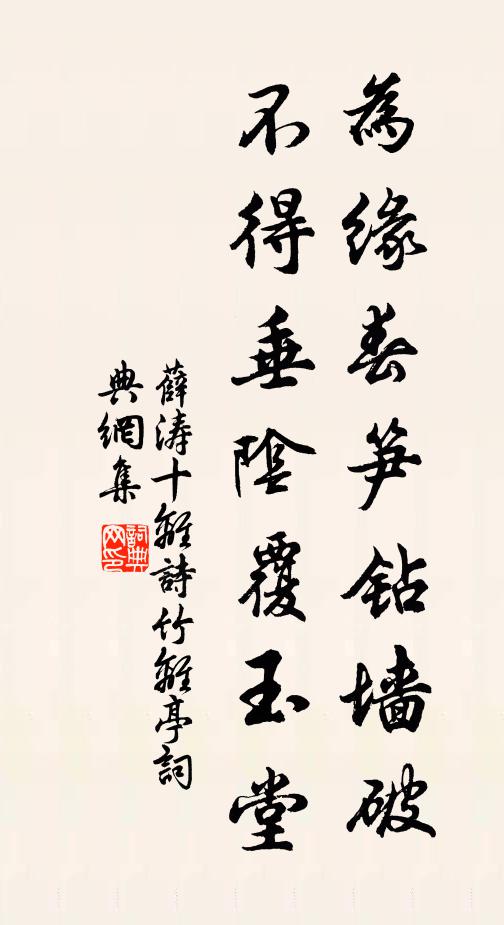 為緣春笋鉆墙破
不得垂陰覆玉堂
薛涛十離詩竹離亭詞
典網集
詞典网印